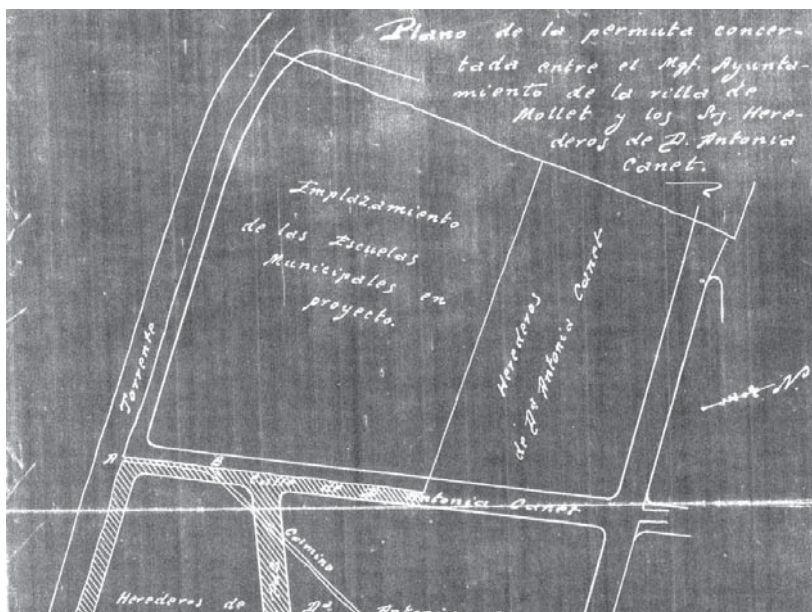 Plano de la permuta concer-
tada entre el Mgf. Ayunta-
miento de la villa de
Mollet y los Srs. Here-
deros de D. Antonia
Canet.
Emplazamiento
de las Escuelas
Municipales en
proyecto.
Herederos
de Dª Antonia Canet
Torrente
N.
A
B
Calle de Dª Antonia Canet
Camino
Herederos de Dª Antonia